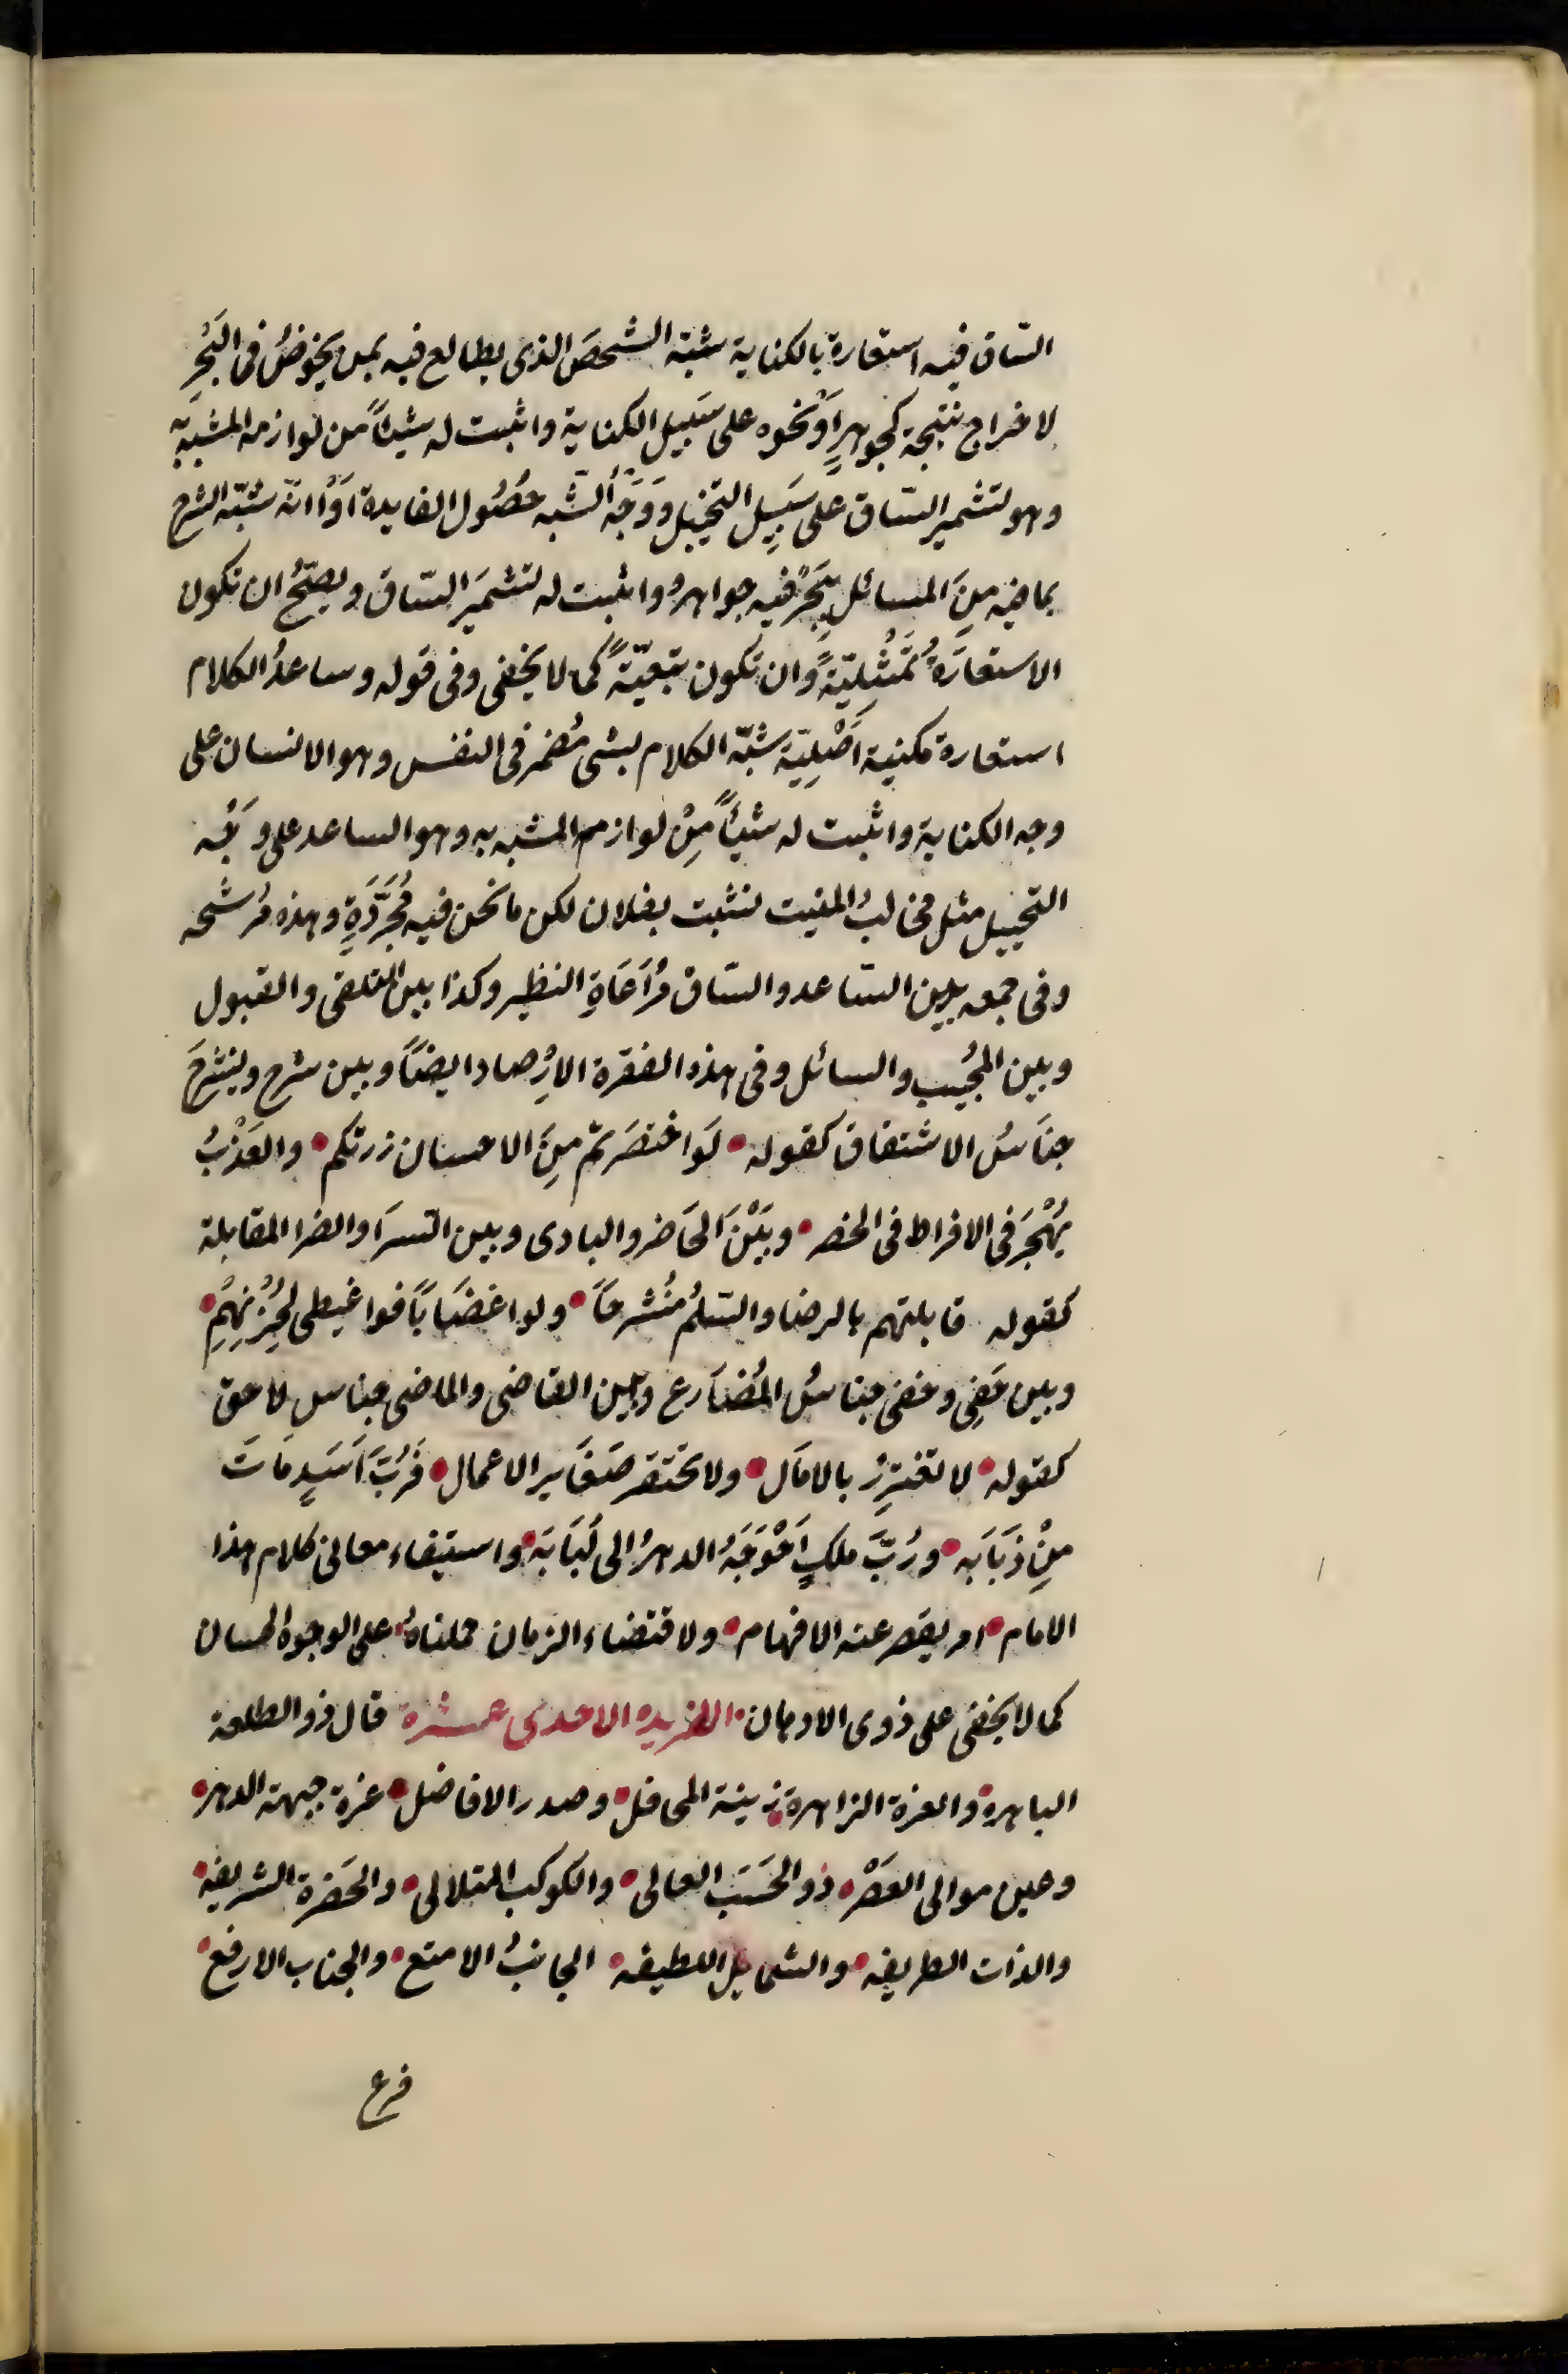 السّاق فيه استعارة بالكناية شبّه الشخصَ الذى يطالع فيه بمن يخوضُ فى البَحْرِ
لاخراج نتيجة كجوهرٍ اَوْ نحوه على سَبيل الكناية واثبت له شيئاً من لوازمه المشبّه به
وهو تشمير السّاق على سَبِيل التخييل وَوَجْهُ الشّبه حصُول الفايدة اَوْ انّه شبّه الشرح
بما فيه مِنَ المسائلِ بِبَحْرٍ فيه جواهر واثبت له تشميَر السّاق ويصحُّ ان تكون
الاستعارَةُ تَمْثِليّةً وان تكون تبعيّةً كما لا يخفى وفى قوله وساعدُ الكلام
استعارة مكنية اَصْلِيّة شبّه الكلام بشى مُضمر فى النفس وهو الانسان على
وجه الكناية واثبت له شيئاً مِنْ لوازم المشبه به وهو الساعد على وَجْه
التخييل مثل مخالبُ المنيت نشبت بفلان لكن ما نحن فيه مُجَرَّدَةٍ وهذه مُرشحه
وفى جمعه بين السّاعد والسّاق مُرَاعَاةِ النظير وكذا بين التلقى والقبول
وبين المجُيب والسائل وفى هذه الفقرة الارْصاد ايضاً وبين شرح وينشرحَ
جناَسُ الاشتقاق كقوله لَو اختصَرتم مِنَ الاحسان زرتكم والعَذْبُ
يُهْجَر فى الافراط فى الخصر وبَيْنَ الحَاضر والبادى وبين السّرَا والضرا المقابلة
كقوله قابلتهم بالرضا والسّلمُ مُنْشرحاً ولوا غضَاباً فوا غيظى لحُِزْنِهِمُ
وبين حَفِى وخفى جناسُ المُضَارع وبين القاضى والماضى جناس لاحق
كقوله لا تغترِرْ بالامَال ولا تحتقر صَغَاير الاعمال فَرُبَّ اَسَدٍ مَاتَ
مِنْ ذبَابَه ورُبَّ ملكٍ اَحْوَجَهُ الدهرُ الى لُبَابَة واستيفاء معانى كلام هذا
الامام امر يقصر عنه الافهام ولاقتضاء الزمان حملناهُ على الوجوه الحسان
كما لا يخفى على ذوى الاذهان الفريده الاحدى عشرة قال ذو الطلعة
الباهرة والعزة الزاهرة زينة المحافل وصدر الافاضل غرة جبهة الدهر
وعين موالى العَصْر ذو الحَسَبَ العالى والكوكب المتلالى والحَضرة الشريفه
والذات الظريفه والشمايل اللطيفه الجانبُ الامتع والجناب الارفع
فرع